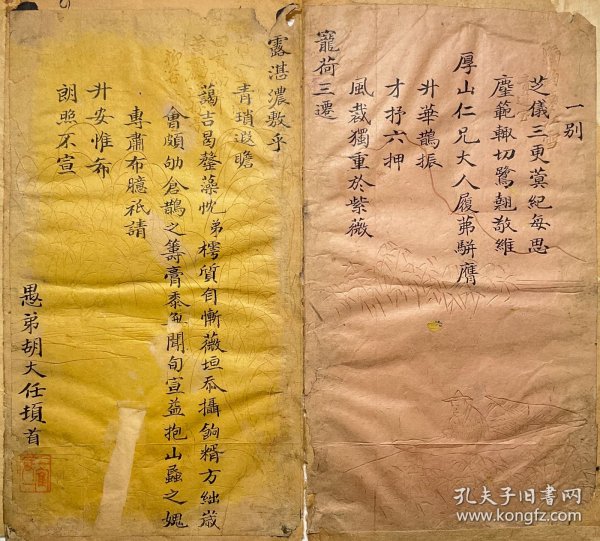 一别
芝儀三更蓂紀每思
麈範輙切鷺翹敬維
厚山仁兄大人履茀駢膺
升華鵲振
才抒六押
風裁獨重於紫薇
寵荷三遷
露湛濃敷乎
青瑣遐瞻
藹吉曷罄藻忱弟樗質自慚薇垣忝攝餉糈方絀歲
會頗劬倉鵲之籌膏黍無聞旬宣益抱山蟊之媿
專肅布臆祇請
升安惟希
朗照不宣
愚弟胡大任頓首
孔夫子旧书网
www.kongfz.com